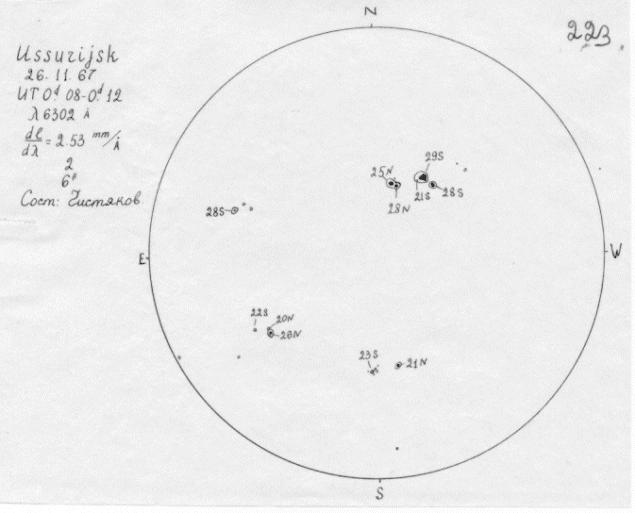 Ussurijsk
26.11.67
UT 0ᵈ.08-0ᵈ.12
λ 6302 Å
dl/dλ = 2.53 mm/Å
2
6ᴴ
Сост: Чистяков
223
N
29S
25N
28N
21S
28S
28S
E
W
22S
20N
26N
23S
21N
S